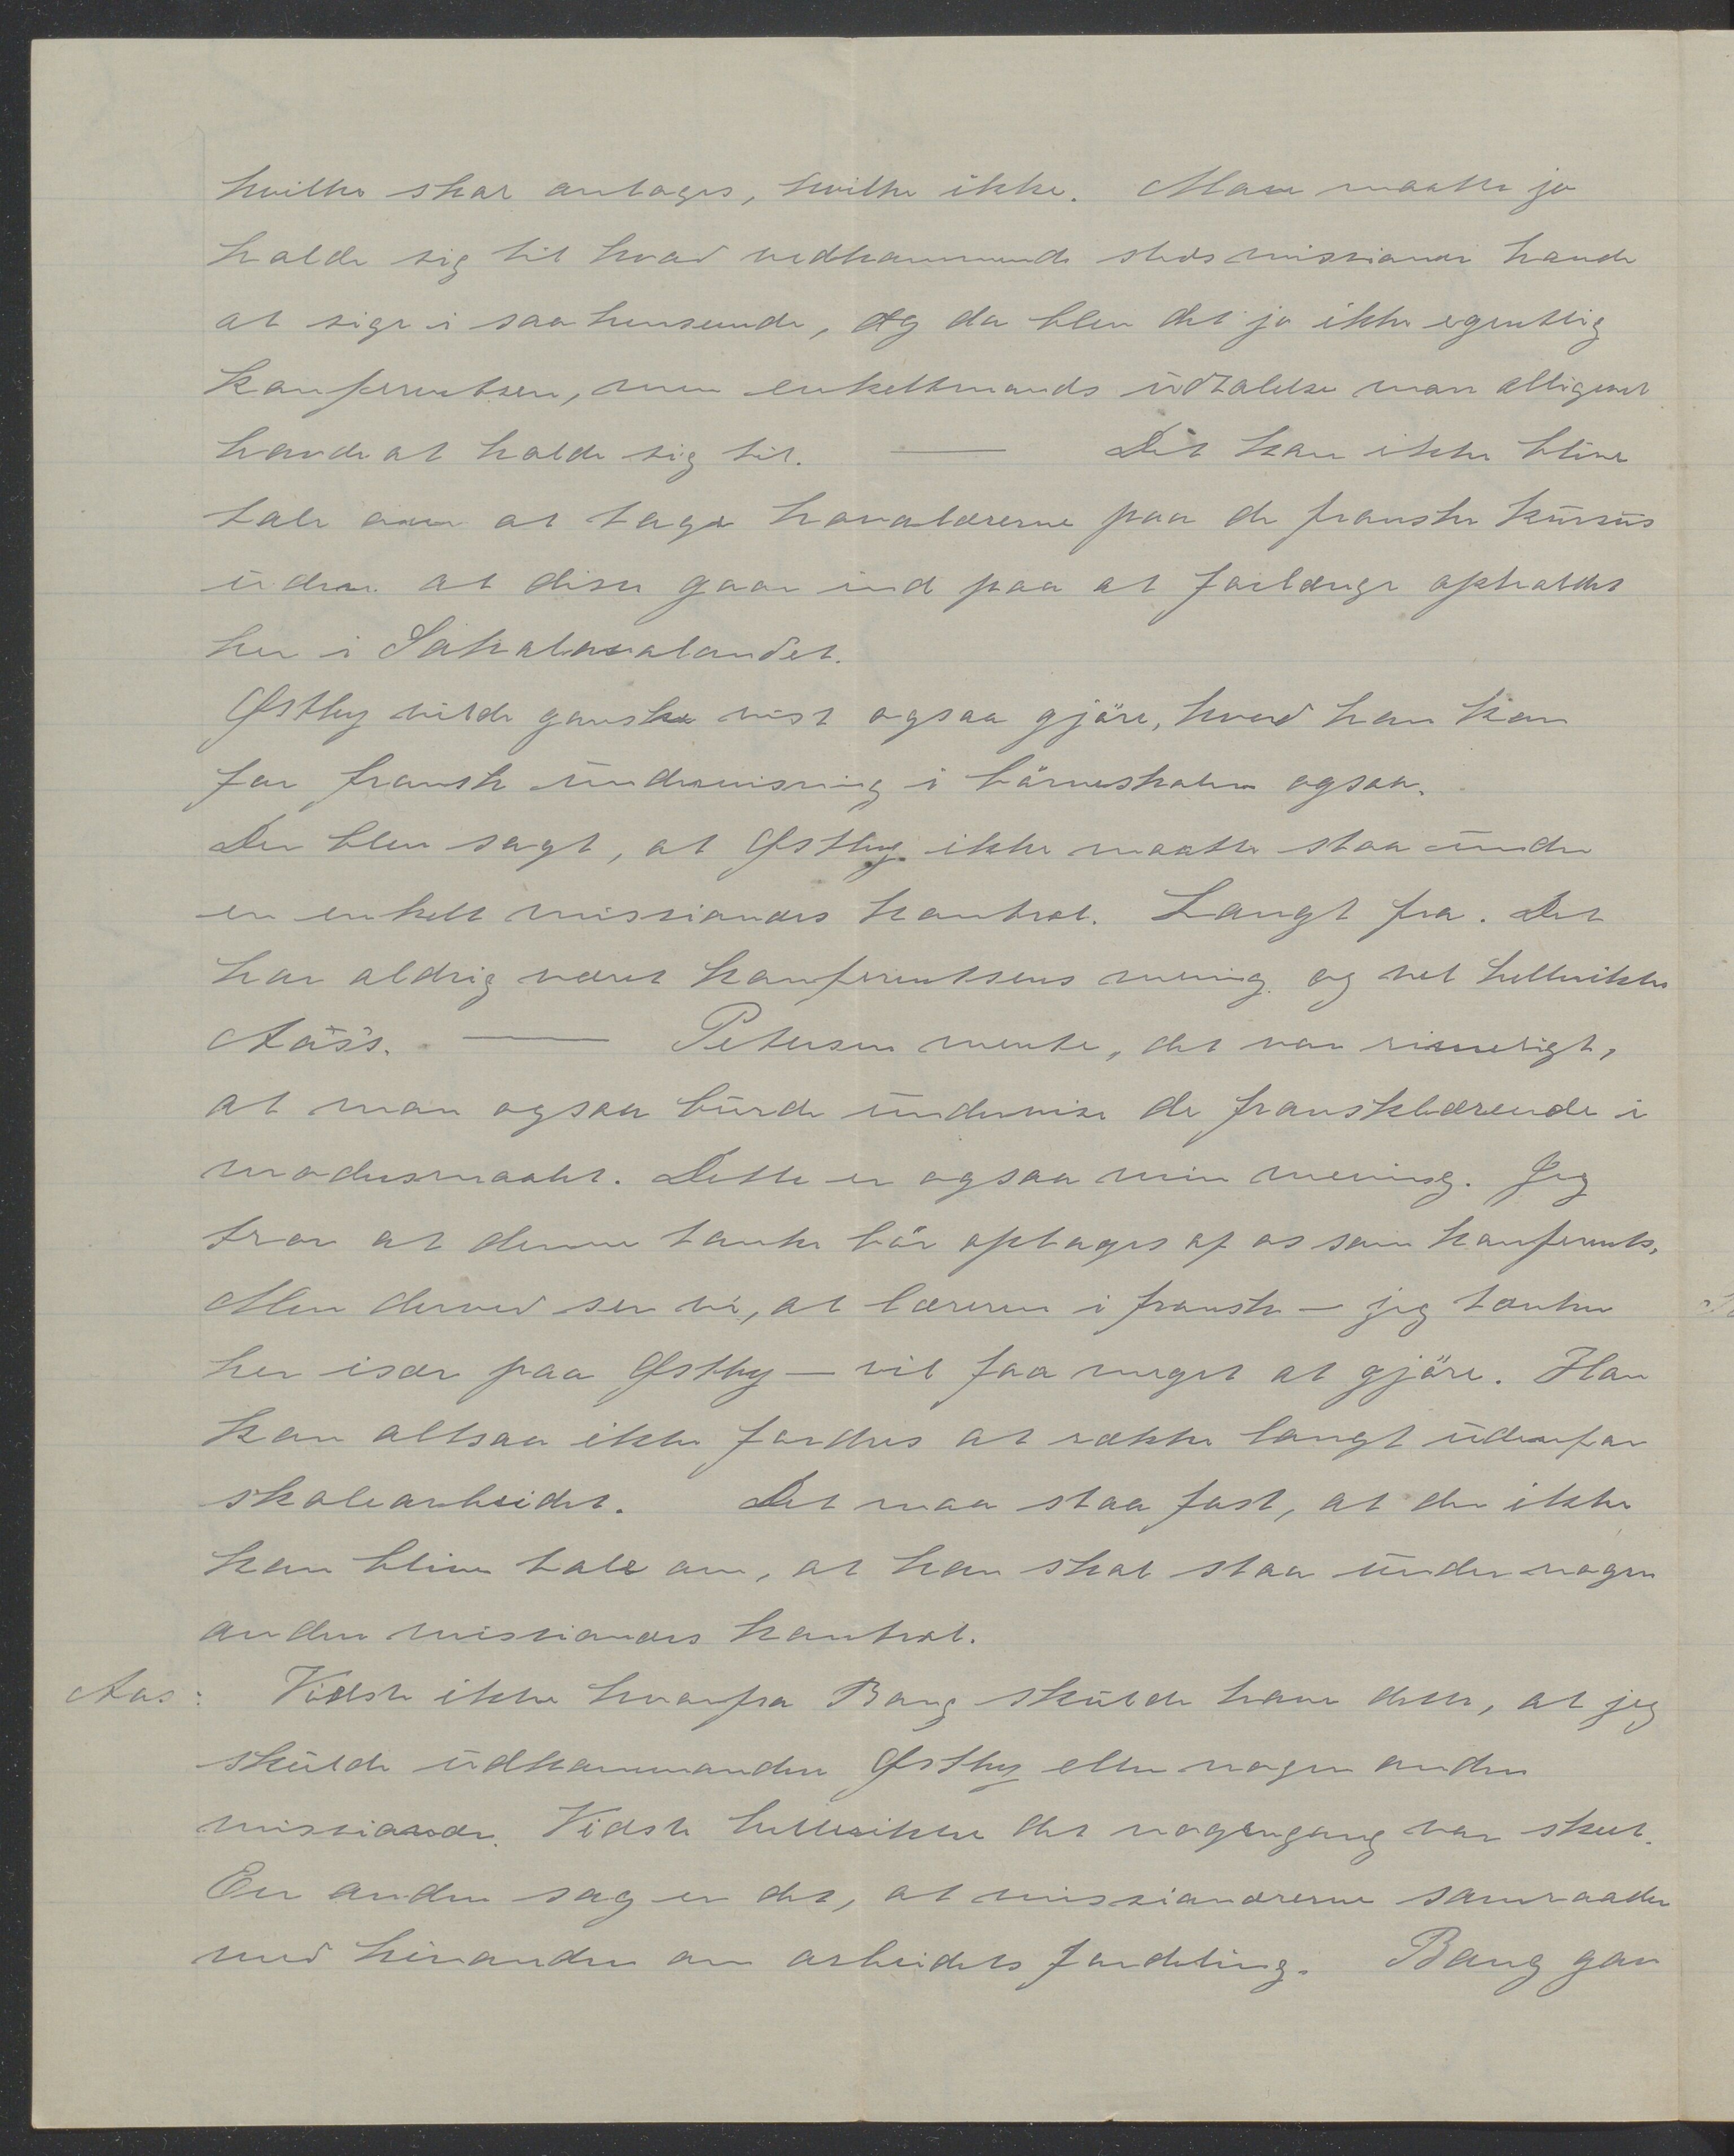 hvilke skal antages, hvilke ikke. Man maatte jo
holde sig til hvad vedkommende stedsmissionær havde
at sige i saa henseende, og da blev det jo ikke egentlig
konferentsen, men enkeltmands udtalelse man alligevel
havde at holde sig til. — Det kan ikke blive
tale om at tage hovalærerne paa de franske kursus
uden at disse gaar ind paa at forlænge opholdet
her i Sakalavalandet.
Østby vilde ganske vist ogsaa gjöre, hvad han kan
for fransk undervisning i börneskolen ogsaa.
Der blev sagt, at Østby ikke maatte staa under
en enkelt missionærs kontrol. Langt fra. Det
har aldrig været konferentsens mening og vel hellerikke
Aas's. — Petersen mente, det var rimeligt,
at man ogsaa burde undervise de fransklærende i
modersmaalet. Dette er ogsaa min mening. Jeg
tror at denne tanke bör optages af os som konferents.
Men derved ser vi, at læreren i fransk — jeg tænker
her især paa Østby — vil faa meget at gjöre. Han
kan altsaa ikke fordres at række langt udenfor
skolearbeidet. Det maa staa fast, at der ikke
kan blive tale om, at han skal staa under nogen
anden missionærs kontrol.
Aas: Vidste ikke hvorfra Bang skulde have dette, at jeg
skulde udkommandere Østby eller nogen anden
missionær. Vidste hellerikke det nogengang var skeet.
En anden sag er det, at missionærerne samraader
med hinanden om arbeidets fordeling. Bang gav